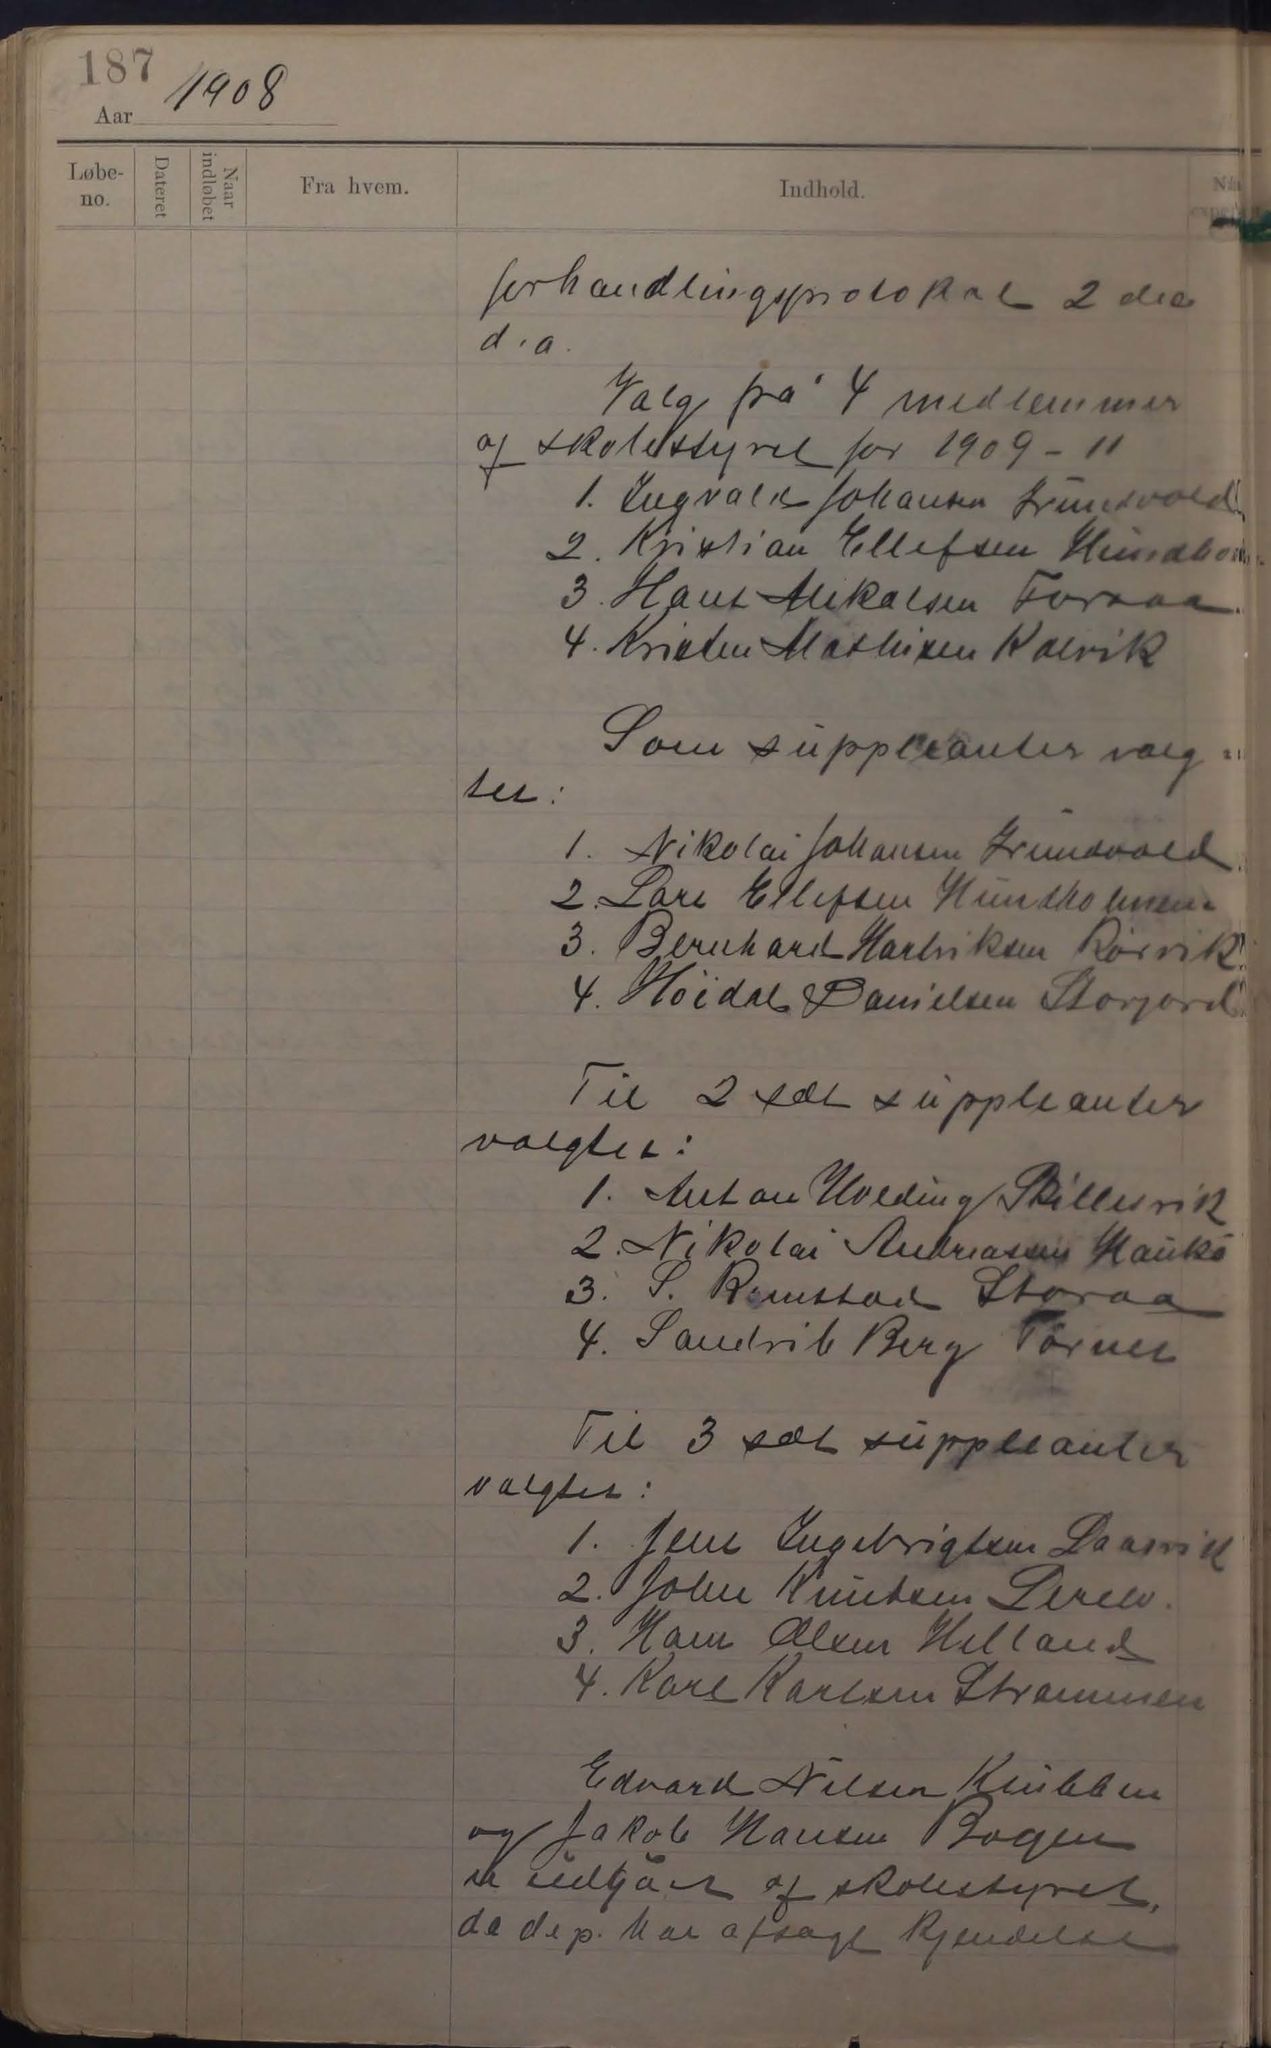 187
Aar 1908
Løbe-
no.
Dateret
Naar
indløbet
Fra hvem.
Indhold.
forhandlingsprotokol 2 des
d.a.
Valg på 4 medlemmer
af skolestyret for 1909-11
1. Ingvald Johansen Grundvold
2. Kristian Ellefsen Hundholm
3. Hans Mikalsen Forsaa
4. Kristen Mathisen Kalvik
Som suppleanter valg-
tes:
1. Nikolai Johansen Grundvold
2. Lars Ellefsen Hundholmen
3. Bernhard Hartviksen Rørvik
4. Höidal Danielsen Storjord
Til 2 sæt suppleanter
valgtes:
1. Anton Hveding Skillesvik
2. Nikolai Andreassen Haukø
3. S. Remstad Storaa
4. Landrik Berg Tørnes
Til 3 sæt suppleanter
valgtes:
1. Jens Ingebrigtsen Daasvik
2. John Knutsen
3. Hans Olsen Helland
4. Karl Karlsen Strømmen
Edvard Nilsen Knubben
og Jakob Hansen Bogen
er udgåt af skolestyret,
da dep. har afsagt kjendelse